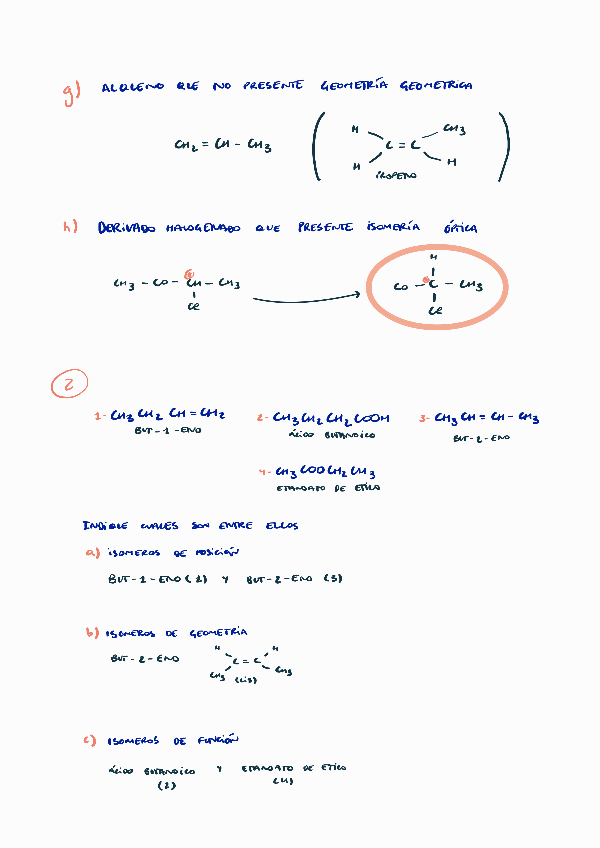 g) ALQUENO QUE NO PRESENTE GEOMETRÍA GEOMETRICA
CH2 = CH - CH3
H CH3
C = C
H H
PROPENO
h) DERIVADO HALOGENADO QUE PRESENTE ISOMERÍA ÓPTICA
H
CH3 - CO - CH - CH3
CO - C - CH3
Cl
Cl
2
1- CH3 CH2 CH = CH2 2- CH3 CH2 CH2 COOH 3- CH3 CH = CH - CH3
BUT - 1 - ENO ÁCIDO BUTANOICO BUT - 2 - ENO
4- CH3 COO CH2 CH3
ETANOATO DE ETILO
INDIQUE CUALES SON ENTRE ELLOS
a) ISOMEROS DE POSICIÓN
BUT - 1 - ENO (1) Y BUT - 2 - ENO (3)
b) ISOMEROS DE GEOMETRÍA
H H
BUT - 2 - ENO C = C
CH3 (cis) CH3
c) ISOMEROS DE FUNCIÓN
ÁCIDO BUTANOICO Y ETANOATO DE ETILO
(2) (4)